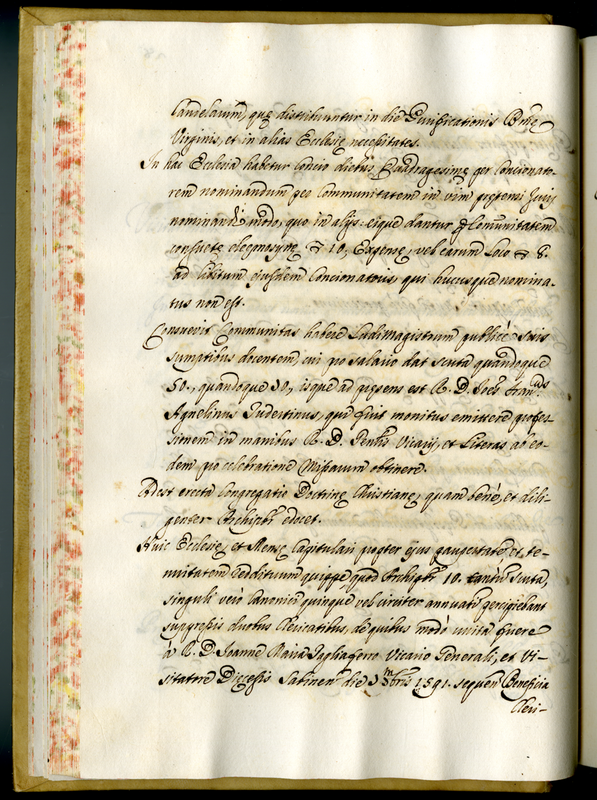 Candelarum, quę distribuuntur in die Purificationis Btę
Virginis, et in alias Ecclesię necessitates.
In hac Ecclesia habetur Concio diebus Quadragesimę per Concionato-
rem nominandum per Communitatem in vim prętensi Juris
nominandi modo, quo in alijs: eique dantur p Comunitatem
consuetę elęmosynę 10, Expensę, vel earum loco 8.
ad libitum eiusdem Concionatoris, qui hucusque nomina-
tus non est.
Consuevit Communitas habere Ludimagistrum publicè suis
sumptibus docentem, cui pro salario dat scuta quandoque
50., quandoque 30, isque ad pręsens est R. D. Joes Fran.cus
Agnelinus Tudertinus, qui fuit monitus emittere profes-
sionem in manibus R. D. Vicarij, et Literas ab eo-
dem pro celebratione Missarum obtinere.
Adest erecta Congregatio Doctrinę Christianę, quam benè, et dili-
genter Archipbr edocet.
Huic Ecclesię, et Mensę Capitulari propter eius paupertatem et te-
nuitatem reddituum quippe quod Archipbr 10. tantum scuta,
singuli verò Canonici quinque vel circiter annuatim percipiebant
suppressis duobus Clericatibus, de quibus modò unita fuere
à R. D. Joanne Maria Tagliaferro Vicario Generali, et Vi-
sitatore Diecesis Sabinen die 3 1591. sequen Beneficia
Cleri-